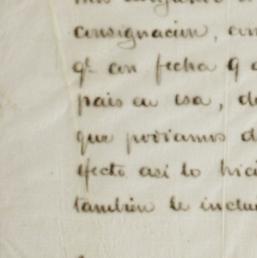 consignacion,
qe con fecha 9
pais en esa, de
que podiamos d
efecto asi lo hici
tambien le inclu